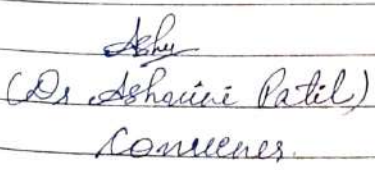 Ashu
(Dr Ashwini Patil)
Convener.